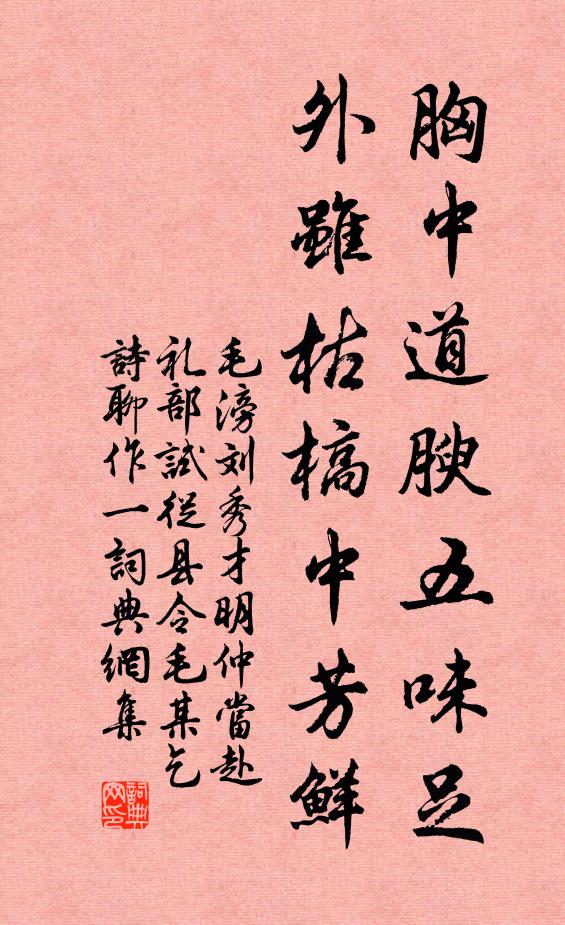 胸中道腴五味足
外雖枯槁中芳鮮
毛滂刘秀才明仲當赴
礼部試從县令毛某乞
詩聊作一詞典網集
詞典
网印